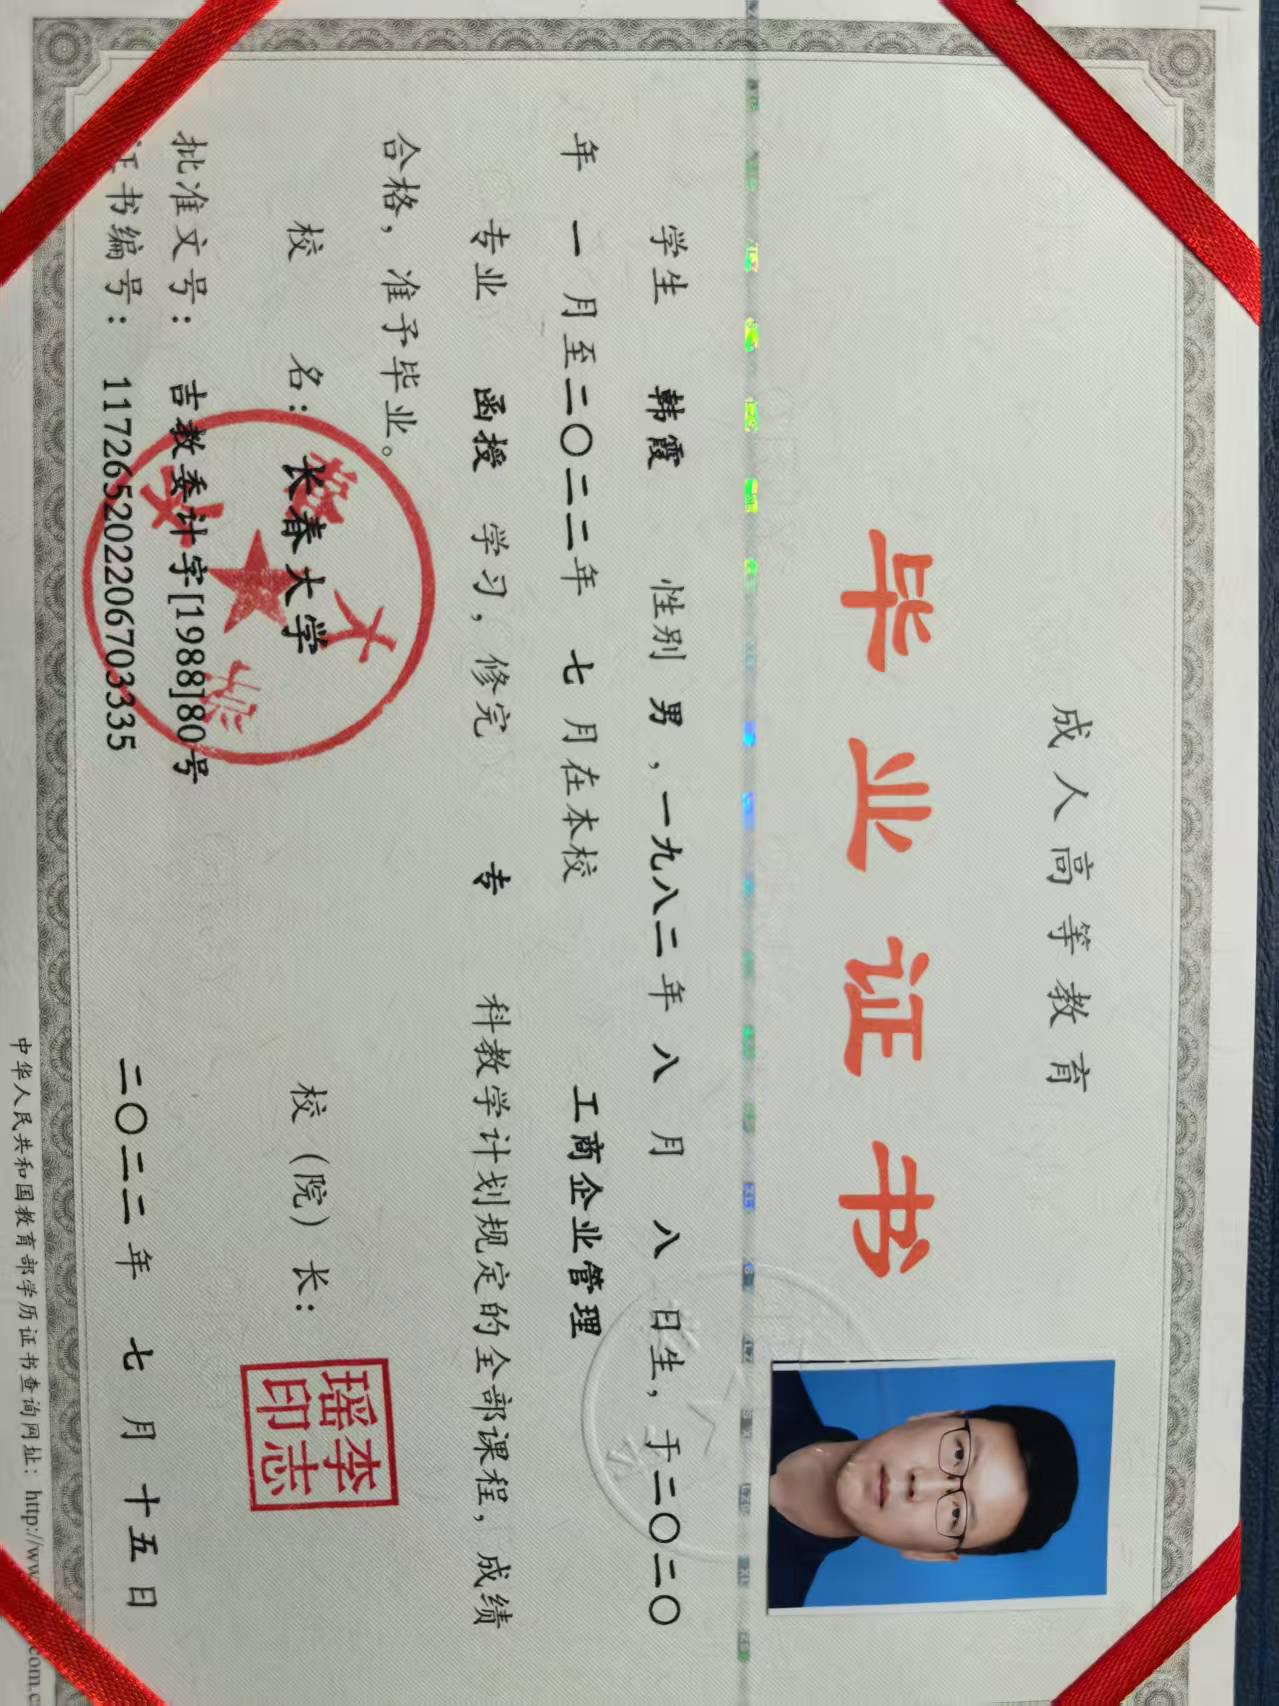 成人高等教育
毕业证书
学生 韩霞 性别 男，一九八二年 八 月 八 日生，于二〇二〇
年 一 月至二〇二二年 七 月在本校 工商企业管理
专业 函授 学习，修完 专 科教学计划规定的全部课程，成绩
合格，准予毕业。
校 名：长春大学 校（院）长：
李志瑶印
批准文号：吉教委计字[1988]80号
证书编号：117265202206703335 二〇二二年 七 月 十五 日
中华人民共和国教育部学历证书查询网址：http://www. .com.c